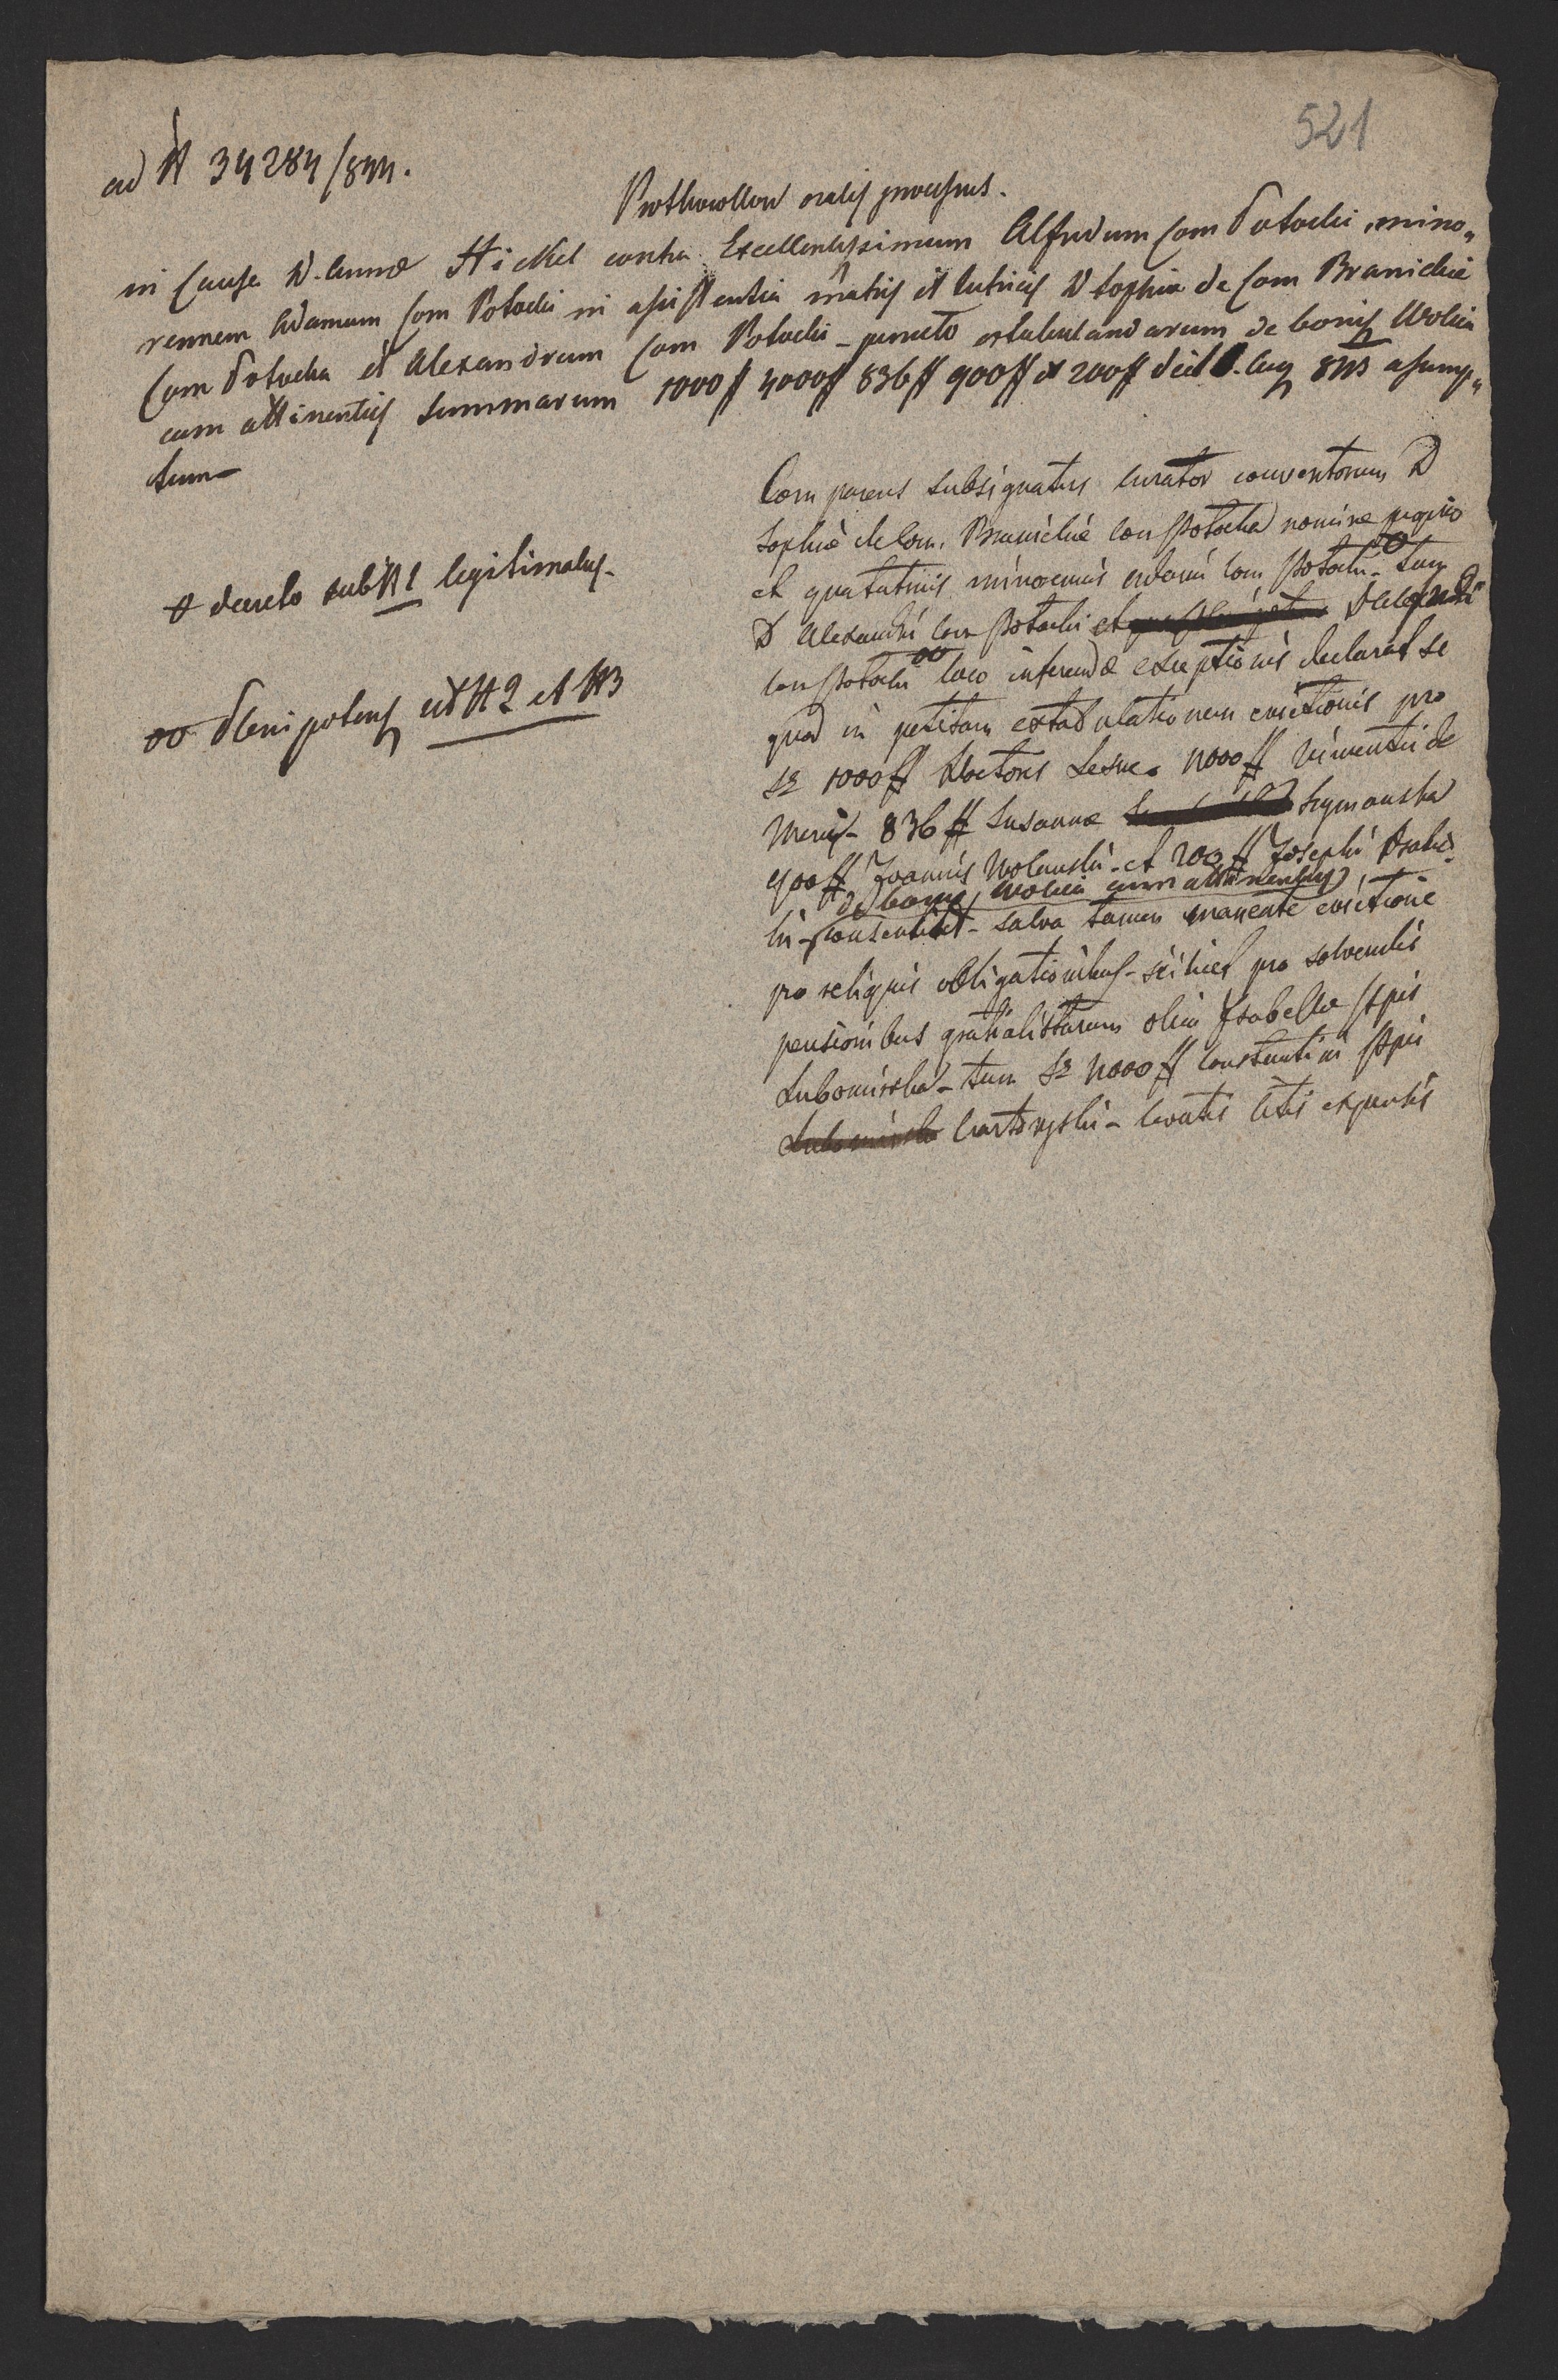 521
ad N 34284/844.
Prothocollon oralis processus.
in Causa D. Annæ Hickel contra Excellentissimum Alfredum Com Potocki, mino„
rennem Adamum Com Potocki in assistentia matris et tutricis D Sophiæ de Com Branickie
Com Potocka et Alexandrum Com Potocki – puncto extabulandarum de bonis Wolica
cum attinentiis summarum 1000 ff 4000 ff 836 ff 900 ff et 200 ff Aug 845 assump„
tum
Comparens subsignatus curator conventorum D
Sophiæ de Com. Branickie Com Potocka nomine proprio
et qua tutricis minorennis Adami Com Potocki – tum
D Alexandri Com Potocki et D Alfredi
Com Potocki oo loco inferendæ exceptionis declarat se
quod in petitam extabulationem evictionis pro
1000 ff Doctoris 4000 ff Vincentii de
836 ff Susannæ Szymanska
900 ff Joannis Wolanski – et 200 ff Josephi
de bonis Wolica cum attinentiis
ki – consentit – salva tamen manente evictione
pro reliquis obligationibus – scilicet pro solvendis
pensionibus gratialistarum olim Isabellæ Ppis
Lubomirska – tum 4000 ff Constantini Ppis
Lubomirski Czartoryski – levatis litis expensis
decreto sub N 1 legitimatus –
oo Plenipotens ut N 2 et N 3